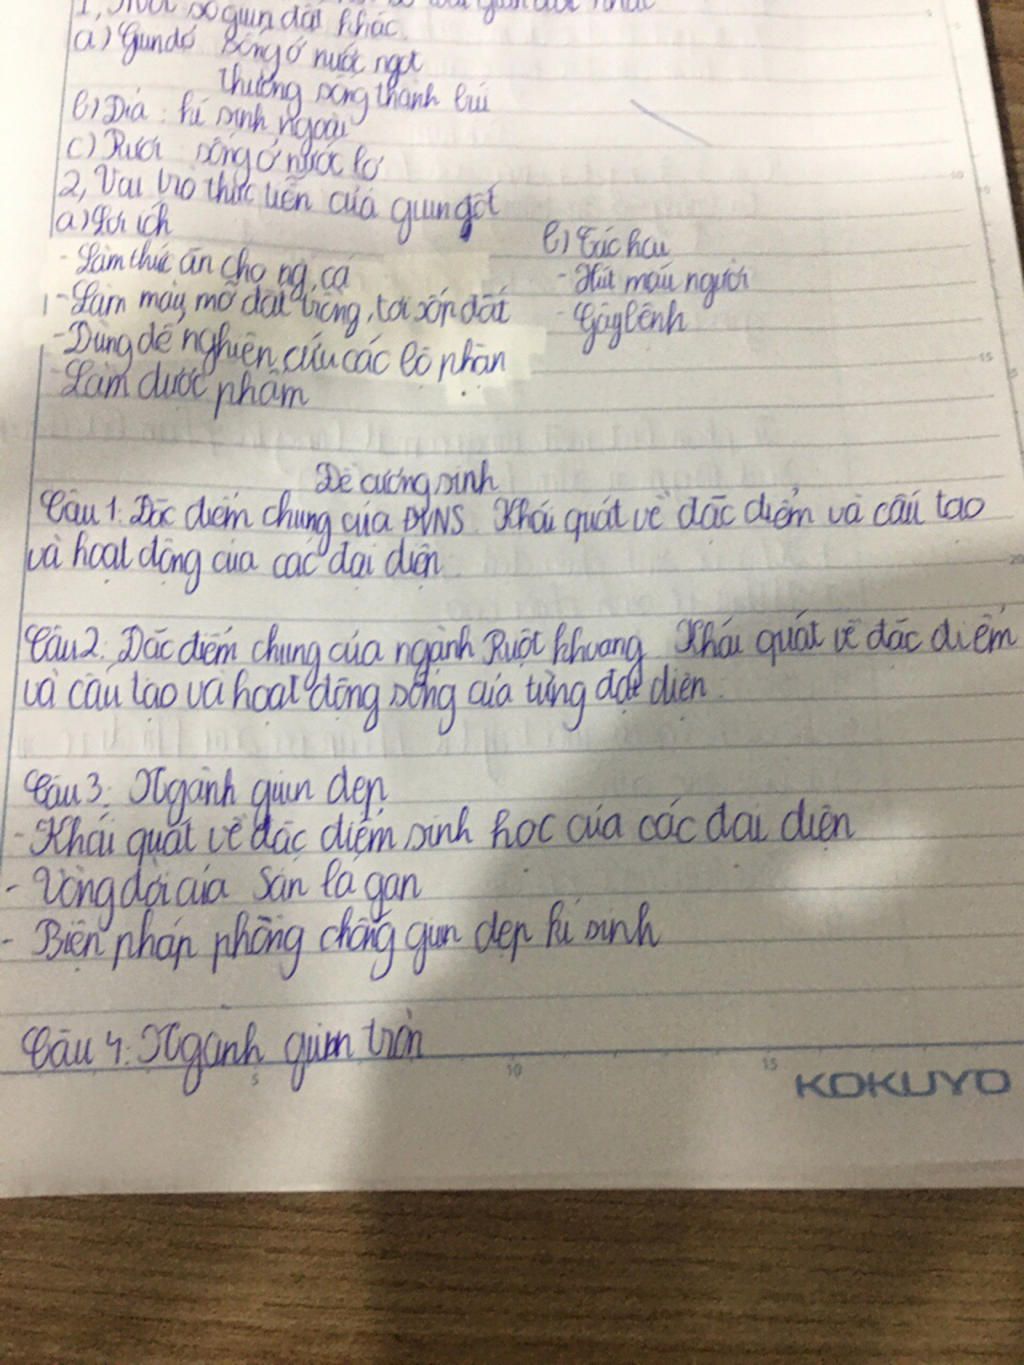 1, Một số giun đất khác
a) Giun đỏ sống ở nước ngọt
thường sống thành búi
b) Đỉa : kí sinh ngoài
c) Rươi sống ở nước lợ
2, Vai trò thực tiễn của giun đốt
a) Lợi ích
b) Tác hại
- Làm thức ăn cho ng, cá
- Hút máu người
- Làm màu mỡ đất trồng, tơi xốp đất
- Gây bệnh
- Dùng để nghiên cứu các bộ phận
- Làm dược phẩm
Đề cương sinh
Câu 1: Đặc điểm chung của ĐVNS. Khái quát về đặc điểm và cấu tạo
và hoạt động của các đại diện.
Câu 2: Đặc điểm chung của ngành Ruột khoang. Khái quát về đặc điểm
và cấu tạo và hoạt động sống của từng đại diện.
Câu 3: Ngành giun dẹp
- Khái quát về đặc điểm sinh học của các đại diện
- Vòng đời của Sán lá gan
- Biện pháp phòng chống giun dẹp kí sinh
Câu 4: Ngành giun tròn
5 10 15
KOKUYO